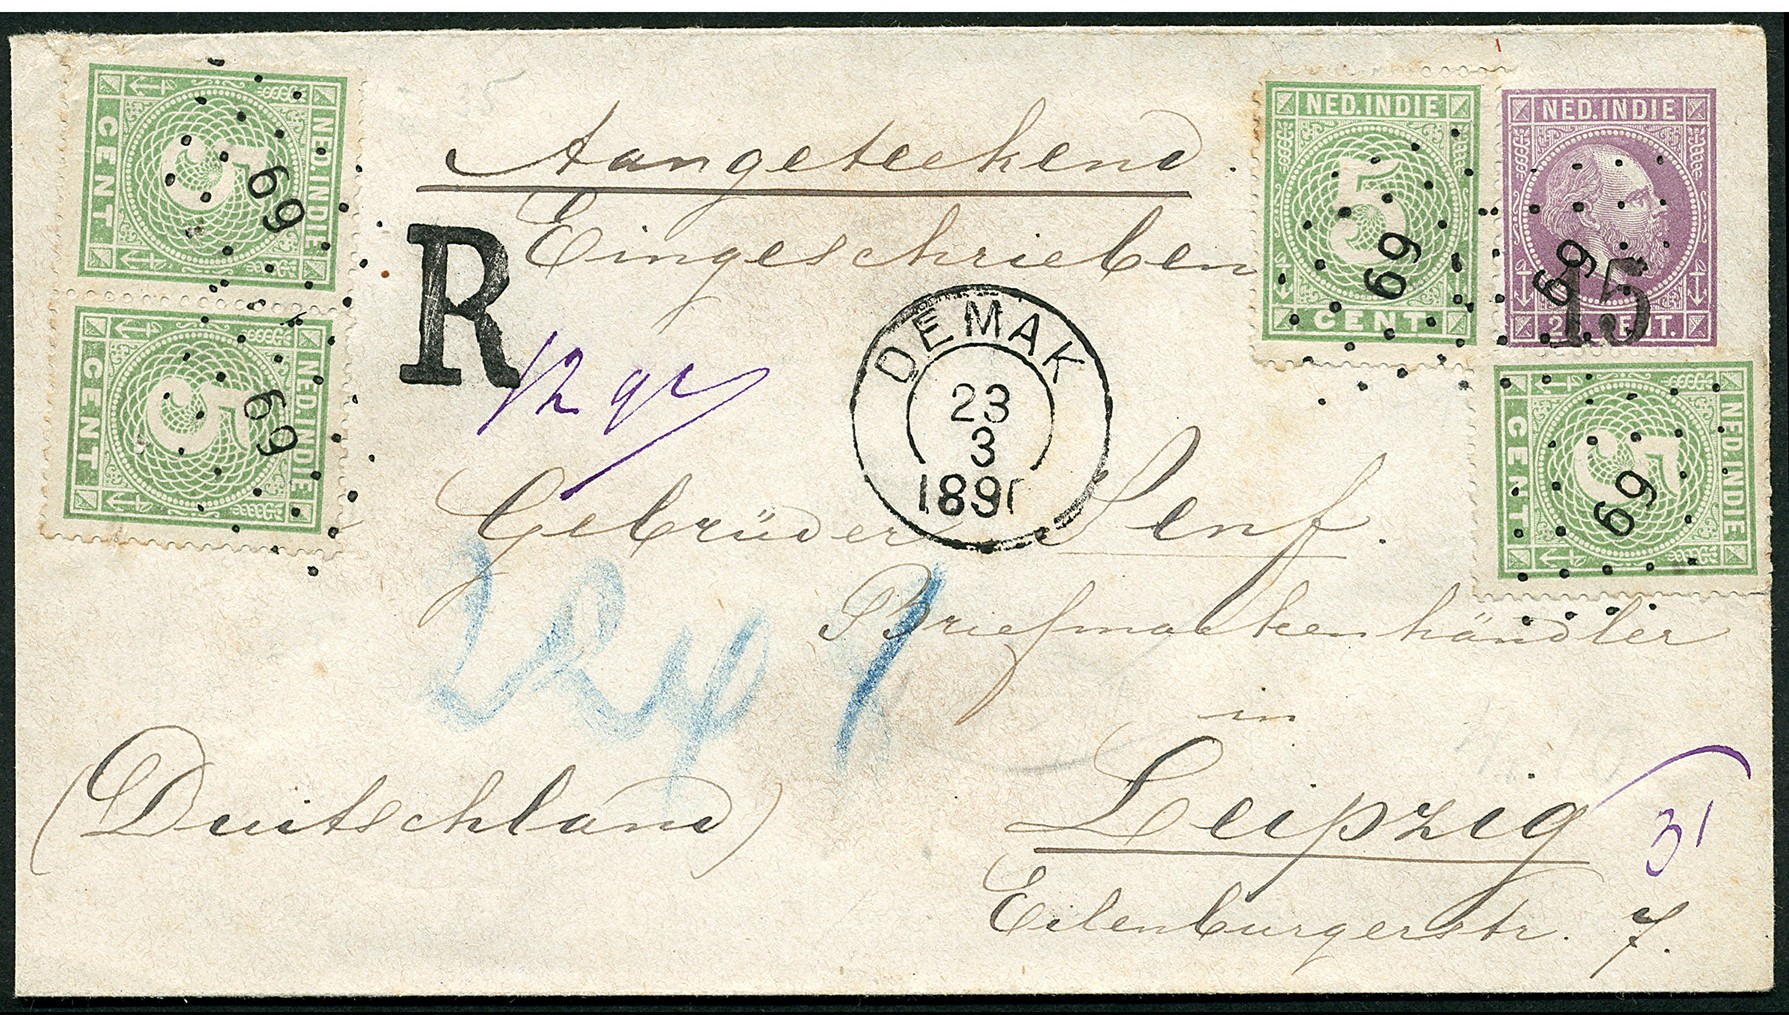 NED. INDIE
5
CENT
69
NED. INDIE
5
CENT
69
NED. INDIE
5
CENT
69
NED. INDIE
69
15
NED. INDIE
5
CENT
69
Aangeteekend.
Eingeschrieben
R
12 gr
DEMAK
23
3
189
Gebrüder Senf.
Briefmarkenhändler
in
Leipzig
(Deutschland)
31
Eilenburgerstr. 7.